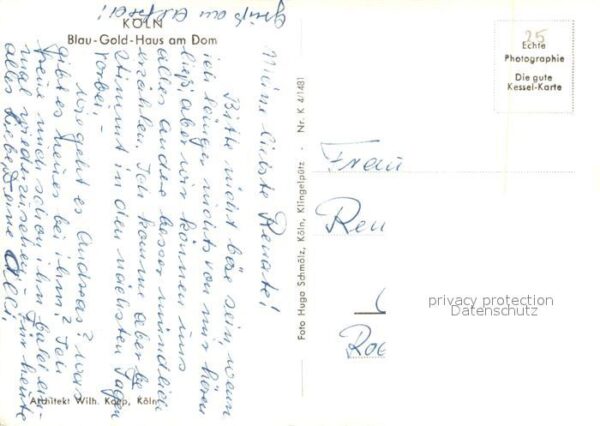 Grüß an Alfred!
KÖLN
Blau-Gold-Haus am Dom
Meine liebste Renate!
Bitte nicht böse sein, wenn
ich länger nichts von mir hören
ließ, aber wir können uns
alles andere besser mündlich
erzählen. Ich komme aber be
stimmt in den nächsten Tagen
vorbei. -
Wie geht es Andreas? Was
gibt es neues bei ihm? Ich
freue mich schon ihn bald ein-
mal wiederzusehen. Für heute
alles Liebe Deine
Architekt Wilh. Koep, Köln
Foto Hugo Schmölz, Köln, Klingelpütz · Nr. K 4/1481
25
Echte
Photographie
Die gute
Kessel-Karte
Frau
Ren
Roe
privacy protection
Datenschutz